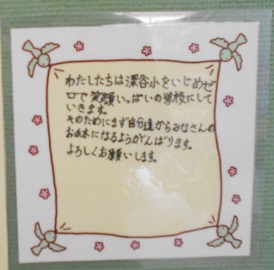 わたしたちは深谷小をいじめゼ
ロで笑顔いっぱいの学校にして
いきます。
そのためにまず自分達からみなさんの
お手本になるようがんばります。
よろしくお願いします。